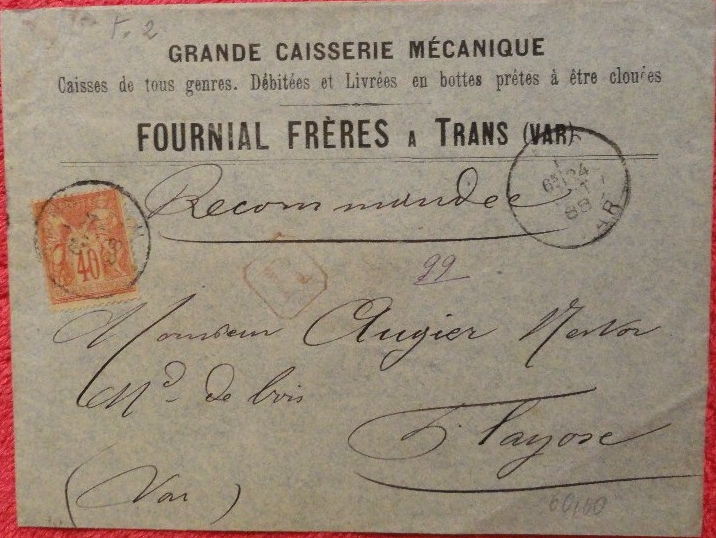 GRANDE CAISSERIE MÉCANIQUE
Caisses de tous genres. Débitées et Livrées en bottes prêtes à être clouées
FOURNIAL FRÈRES A TRANS (VAR)
Recommandée
40
R
99
88
Monsieur Augier Nestor
Md de bois
Flayosc
(Var)